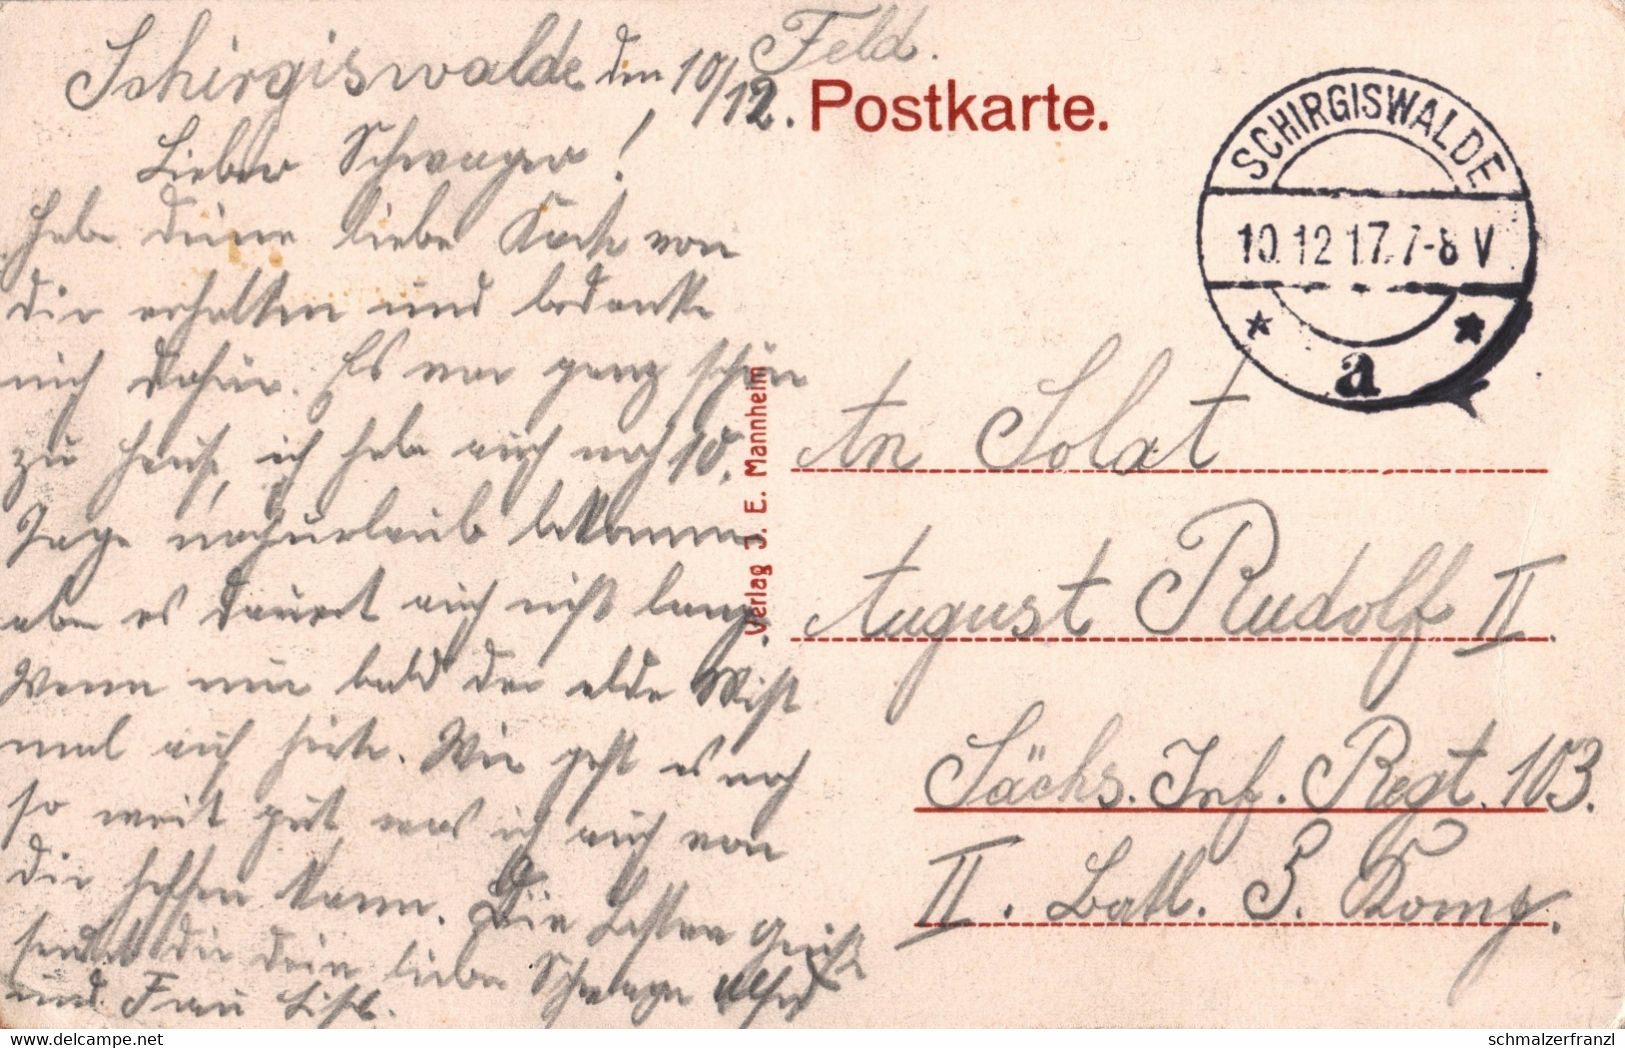 Schirgiswalde den 10/12.
Feld.
Postkarte.
Lieber Schwager!
Habe deine liebe Karte von
dir erhalten und bedanke
mich dafür. Es war ganz schön
zu Hause, ich habe auch noch 10.
Tage nachurlaub bekommen
aber es dauert auch nicht lang.
Wenn nur bald der elde Mist
mal auch hirte. Wie geht es noch
so weit gut was ich auch von
dir hoffen kann. Die besten Grüße
sendet dir dein lieber Schwager Alfred
und Frau
Verlag J. E. Mannheim
SCHIRGISWALDE
10.12.17. 7-8 V
* a *
An Solat
August Rudolf II.
Sächs. Inf. Regt. 103.
II. Batl. 5. Komp.
schmalzerfranzl